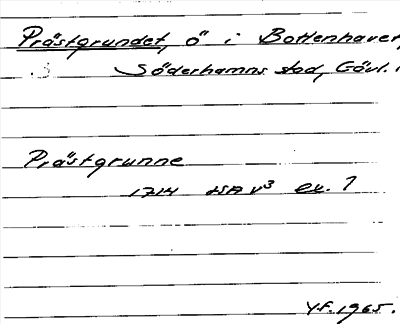 Prästgrundet, ö i Bottenhavet,
Söderhamns stad, Gävl.
Prästgrunne
1714 ev. ?
1965.